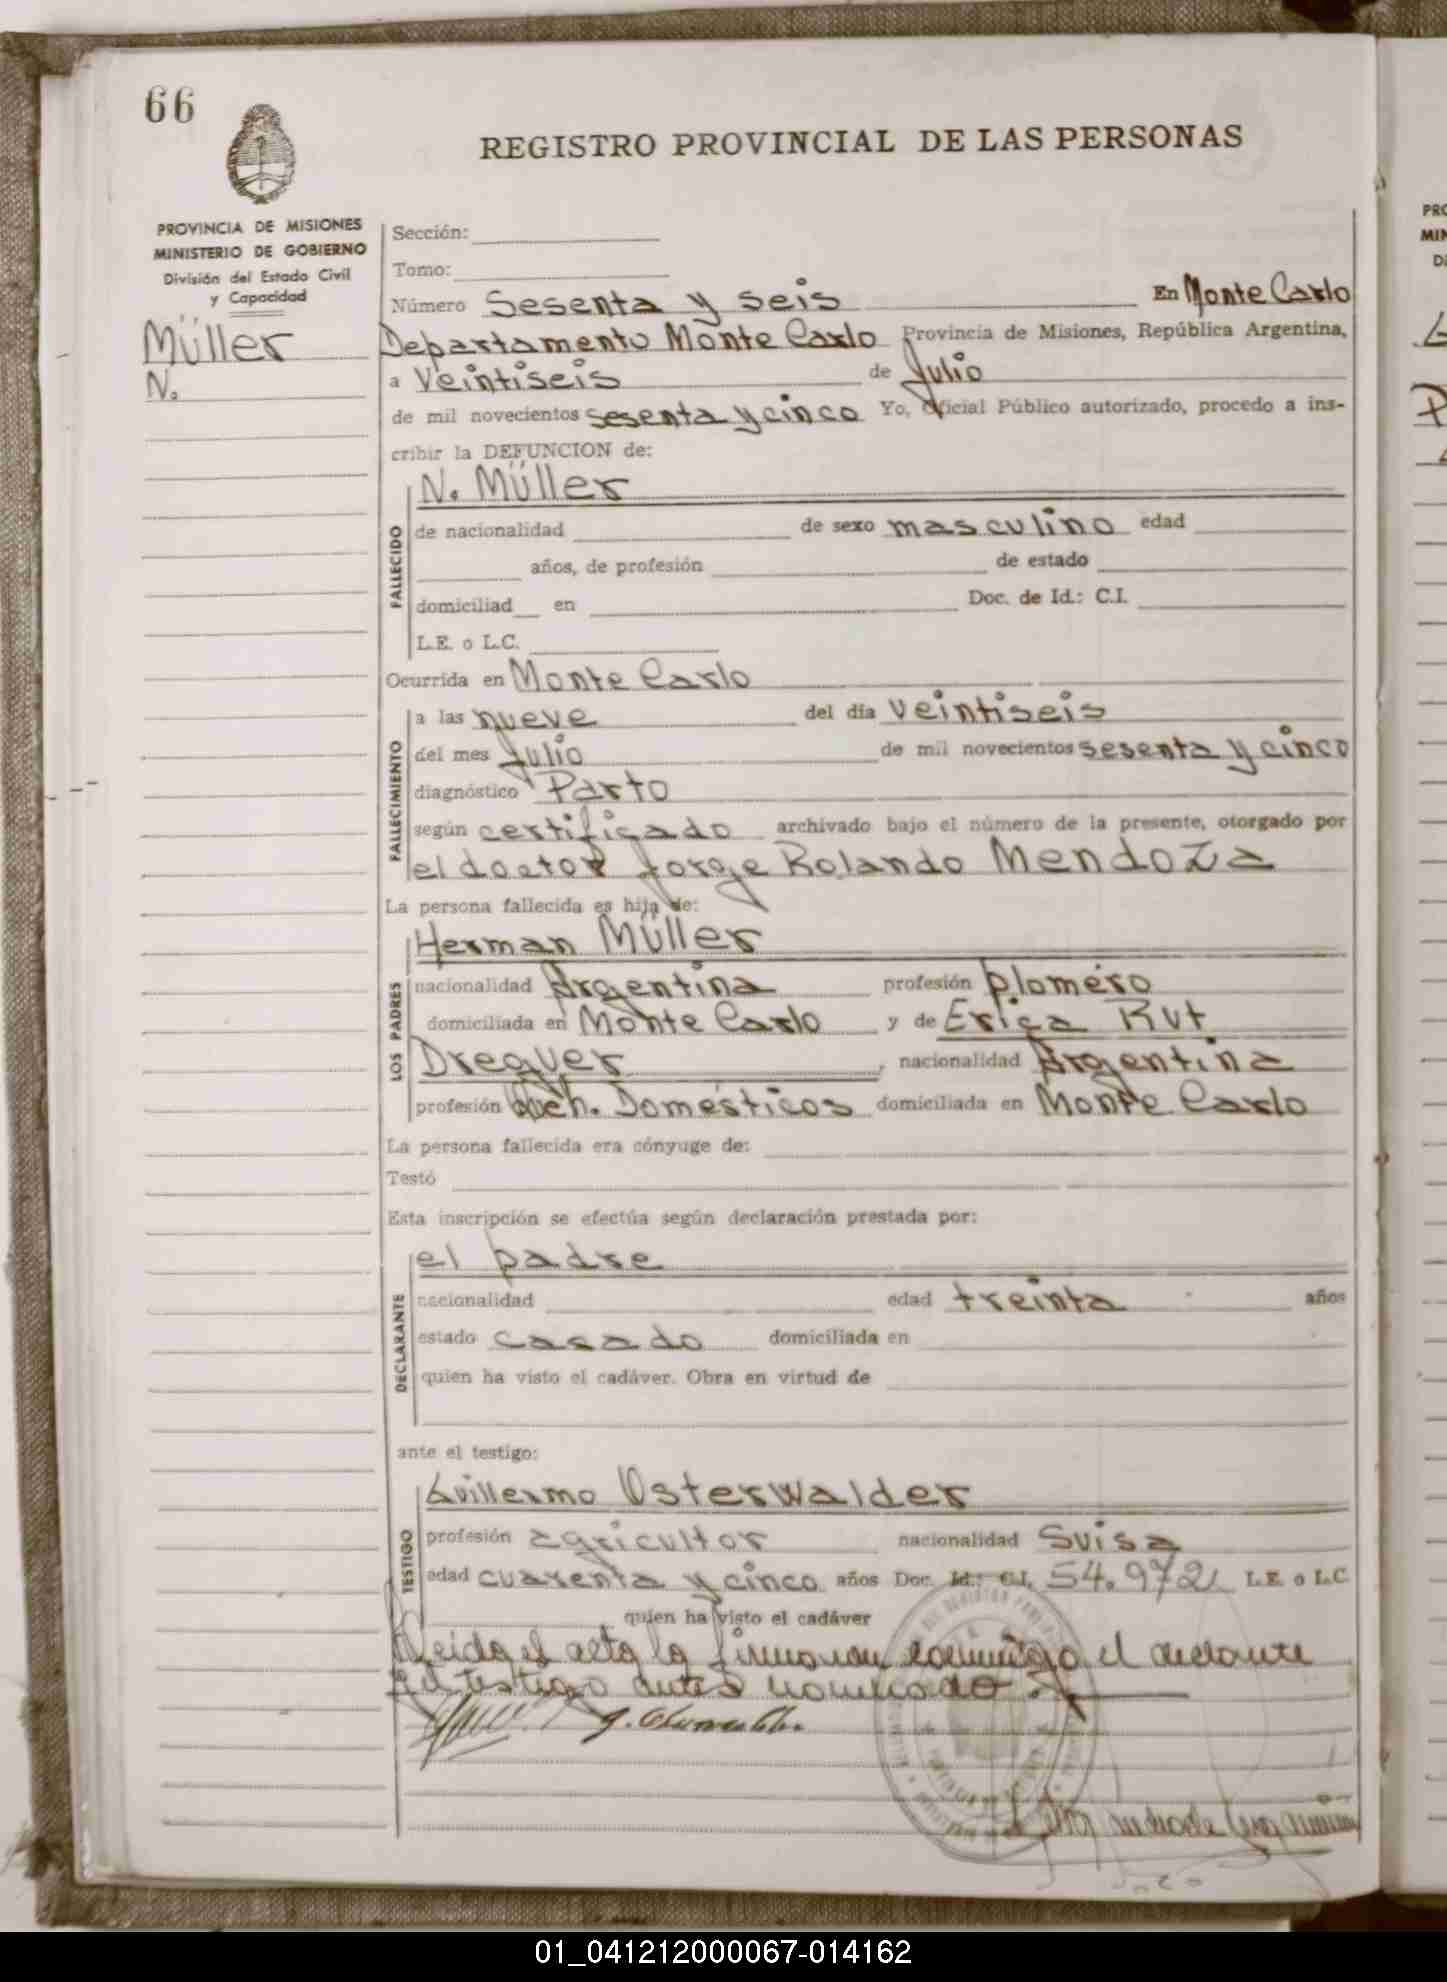 66
REGISTRO PROVINCIAL DE LAS PERSONAS
PROVINCIA DE MISIONES
MINISTERIO DE GOBIERNO
División del Estado Civil
y Capacidad
Müller
N.
Sección:
Tomo:
Número Sesenta y seis En Monte Carlo
Departamento Monte Carlo Provincia de Misiones, República Argentina,
a Veintiseis de Julio
de mil novecientos sesenta y cinco Yo, Oficial Público autorizado, procedo a ins-
cribir la DEFUNCION de:
FALLECIDO
N. Müller
de nacionalidad de sexo masculino edad
años, de profesión de estado
domiciliad en Doc. de Id.: C.I.
L.E. o L.C.
Ocurrida en Monte Carlo
FALLECIMIENTO
a las nueve del día veintiseis
del mes Julio de mil novecientos sesenta y cinco
diagnóstico Parto
según certificado archivado bajo el número de la presente, otorgado por
el doctor Jorge Rolando Mendoza
La persona fallecida es hija de:
LOS PADRES
Herman Müller
nacionalidad Argentina profesión plomero
domiciliada en Monte Carlo y de Erica Rut
Dreguer, nacionalidad Argentina
profesión Queh. Domésticos domiciliada en Monte Carlo
La persona fallecida era cónyuge de:
Testó
Esta inscripción se efectúa según declaración prestada por:
DECLARANTE
el padre
nacionalidad edad treinta años
estado casado domiciliada en
quien ha visto el cadáver. Obra en virtud de
ante el testigo:
TESTIGO
Guillermo Osterwalder
profesión agricultor nacionalidad Suisa
edad cuarenta y cinco años Doc. Id.: C.I. 54.972 L.E. o L.C.
quien ha visto el cadáver
Leida el acta la firmaron conmigo el
y el testigo antes nominado
01_041212000067-014162